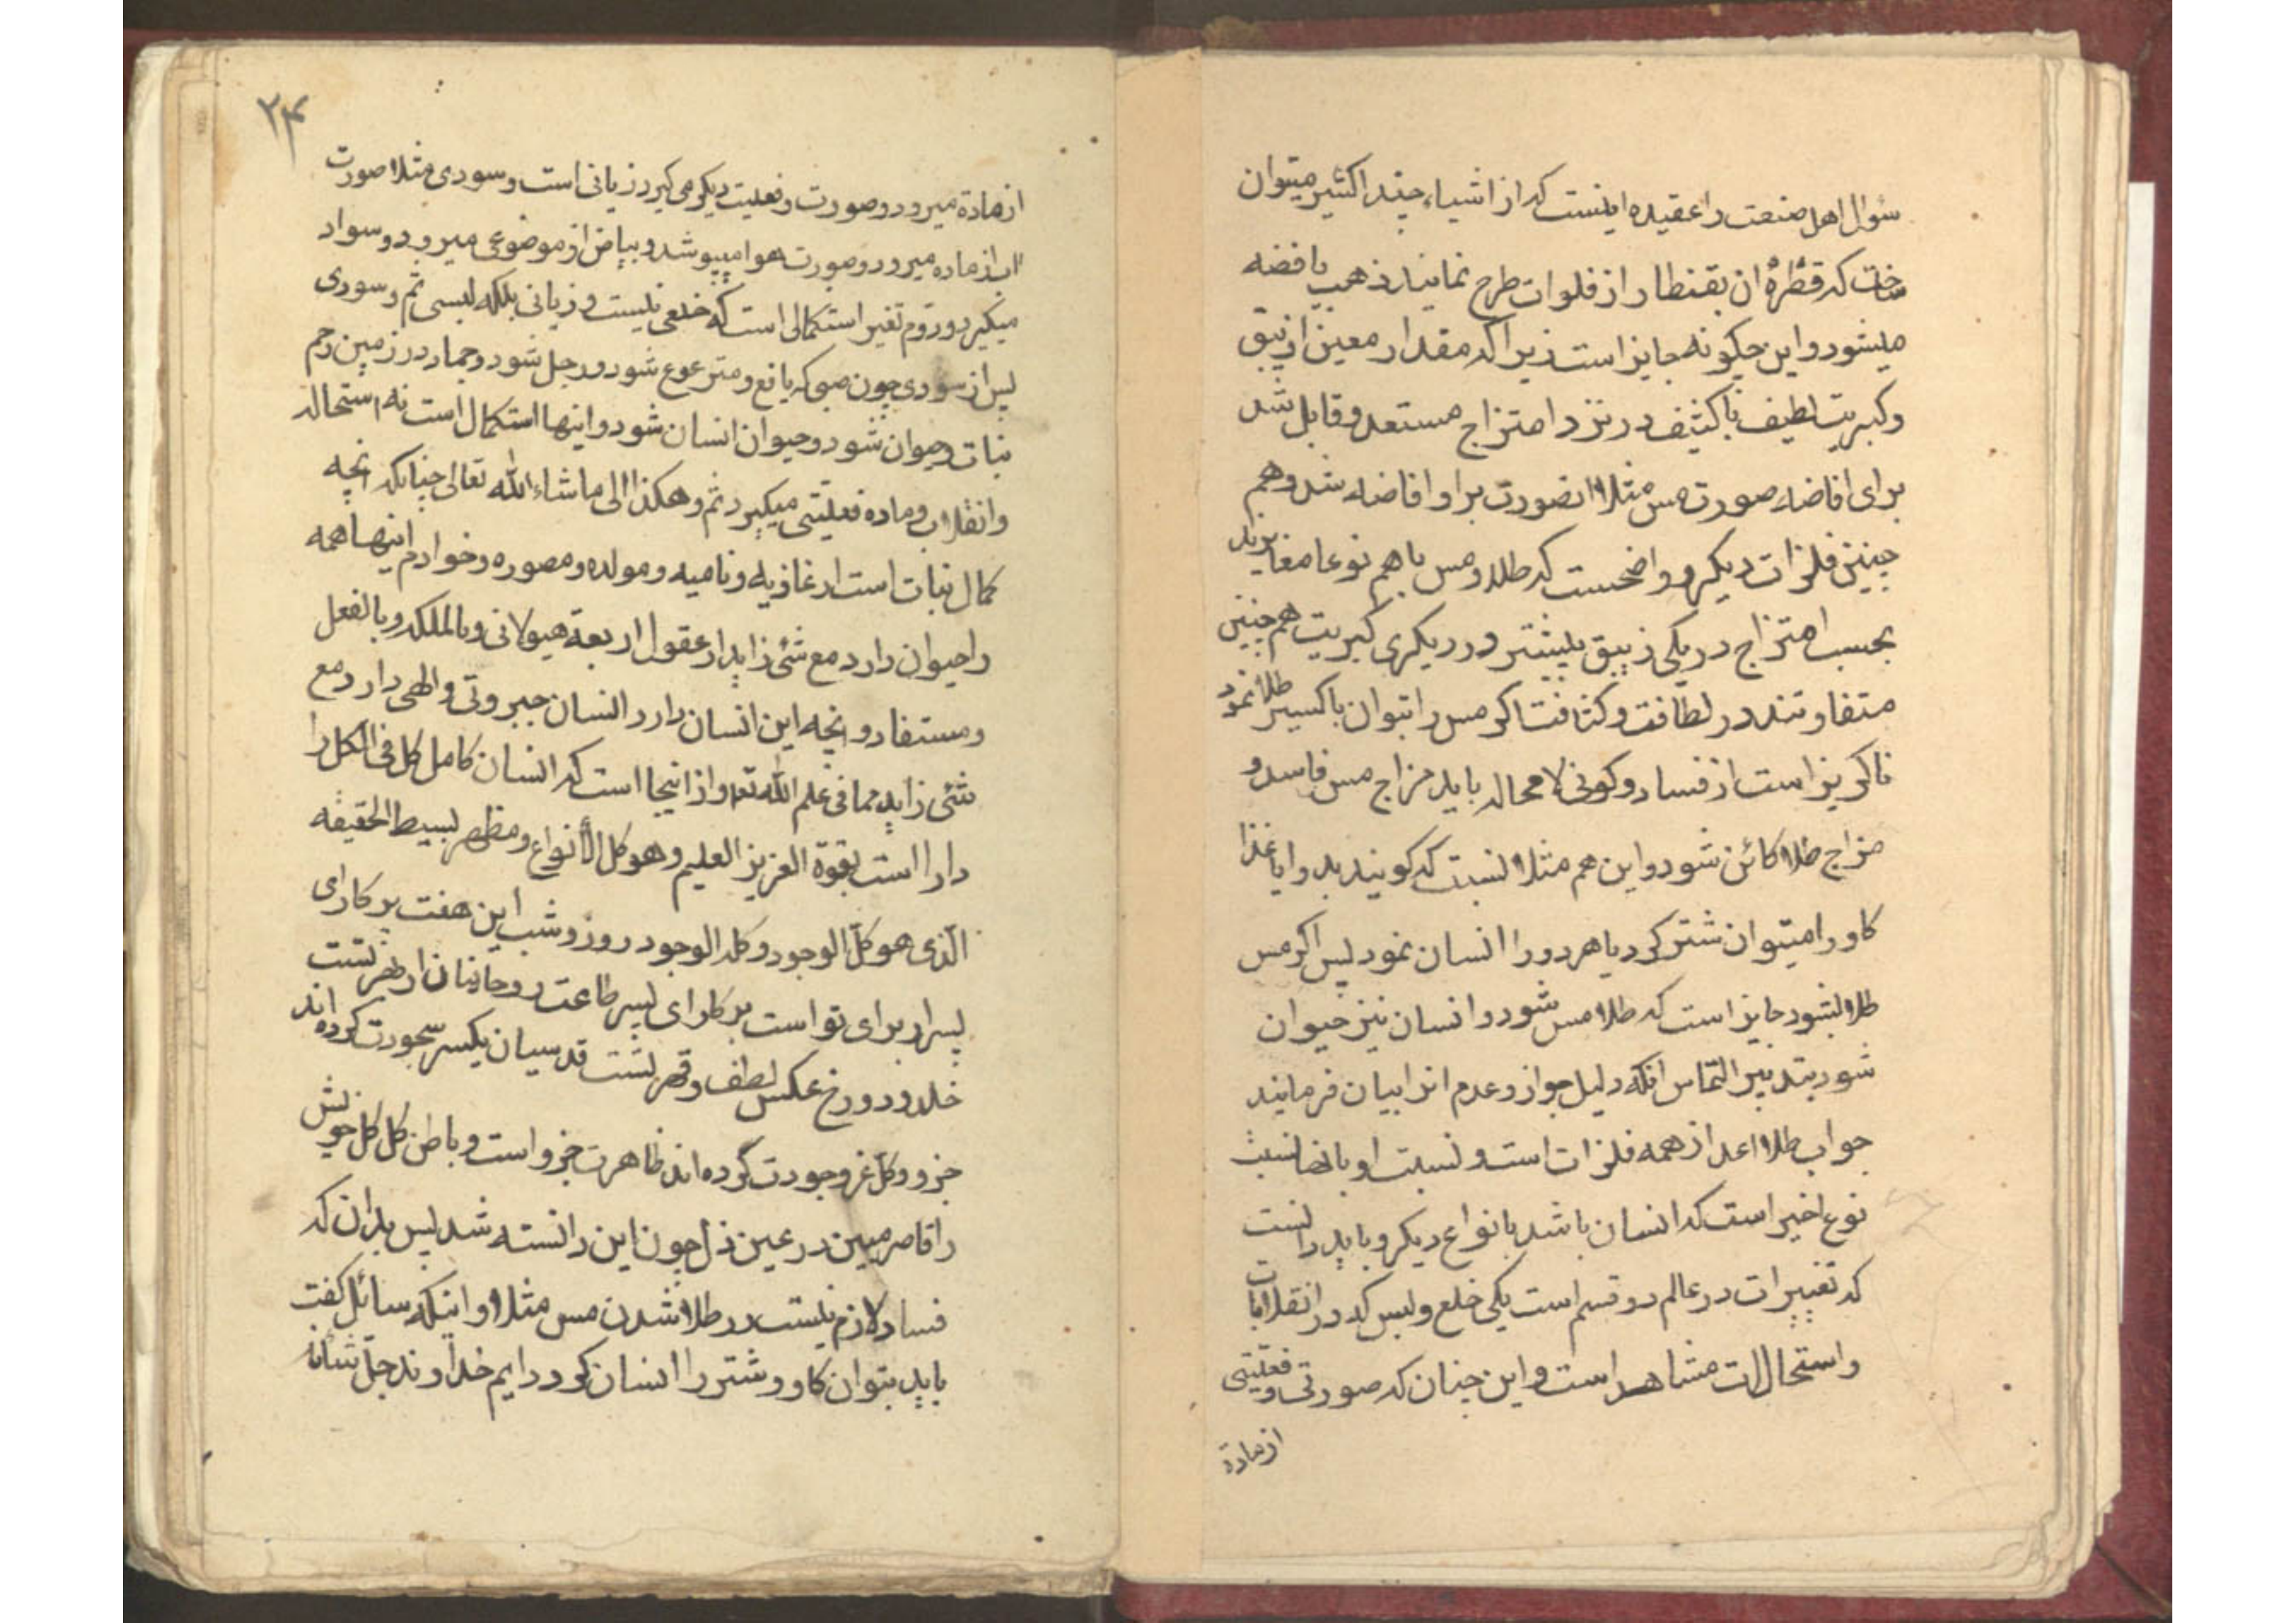 سؤال اهل صنعت را عقیده اینست که از اشیاء چند اکثیر میتوان
ساخت که قطرهٔ ان بقنطار از فلوات طرح نمایند ذهب یا فضه
میشود و این چگونه جایز است زیرا که مقدار معین از زیبق
و کبریت لطیف یا کثیف در نزد امتزاج مستعد و قابل شد
برای افاضه صورت مس مثلا انصورت بر او افاضه شد و هم
چنین فلزات دیگر و واضحست که طلا و مس با هم نوعا مغایرند
بحسب امتزاج در یکی زیبق بیشتر و در دیگری کبریت هم چنین
متفاوتند در لطافت و کثافت اگر مس را بتوان باکسیر طلا نمود
ناگریز است از فساد و کونی لا محاله باید مزاج مس فاسد و
مزاج طلا کائن شود و این هم مثلا نسبت که گویند بد و ایا غذا
گاو را میتوان شتر کرد یا هر دو را انسان نمود پس اگر مس
طلا بشود جایز است که طلا مس شود و انسان نیز حیوان
شود بتدبیر التماس انکه دلیل جواز و عدم انرا بیان فرمایند
جواب طلا اعدل از همه فلزات است و نسبت او بانها نسبت
نوع اخیر است که انسان باشد بانواع دیگر و باید دانست
که تغییرات در عالم دو قسم است یکی خلع و لبس که در انقلابات
و استحالات مشاهد است و این چنان که صورتی و فعلیتی
از مادة
۲۴
از مادة میرود و صورت و فعلیت دیگر می گیرد زیانی است و سودی مثلا صورت
اب از ماده میرود و صورت هوا میپوشد و بیاض از موضوعی میرود و سواد
میگیرد و دوم تغیر استکمالی است که خلعی نیست و زیانی بلکه لبسی ثم و سودی
پس از سودی چون صبی که یافع و مترعرع شود و رجل شود و جماد در زمین رحم
نبات و حیوان شود و حیوان انسان شود و اینها استکمال است نه استحاله
و انقلاب و ماده فعلیتی میگیرد ثم و هکذا الی ما شاء الله تعالی چنانکه انچه
کمال نبات است از غاذیه و نامیه و مولده و مصوره و خوادم اینها همه
را حیوان دارد مع شئ زاید از عقول اربعة هیولانی و بالملکه و بالفعل
و مستفاد و انچه این انسان دارد انسان جبروتی و الهی دارد مع
شئ زاید مما فی علم الله تعه و از اینجا است که انسان کامل کل فی الکل را
دارا است بقوة العزیز العلیم و هو کل الأنواع و مظهر بسیط الحقیقه
الذی هو کل الوجود و کله الوجود روز و شب این هفت پرگار ای
پسر از برای تو است بر کار ای پسر طاعت روحانیان از بهر تست
خلد و دوزخ عکس لطف و قهر تست قدسیان یکسر سجودت کرده اند
جزو و کل غرق وجودت کرده اند ظاهرت جزو است و باطن کل کل خویش
را قاصر مبین در عین ذل چون این دانسته شد پس بدان که
فساد لازم نیست در طلا شدن مس مثلا و اینکه سائل گفت
باید بتوان گاو و شتر را انسان کرد دایم خداوند جل شانه